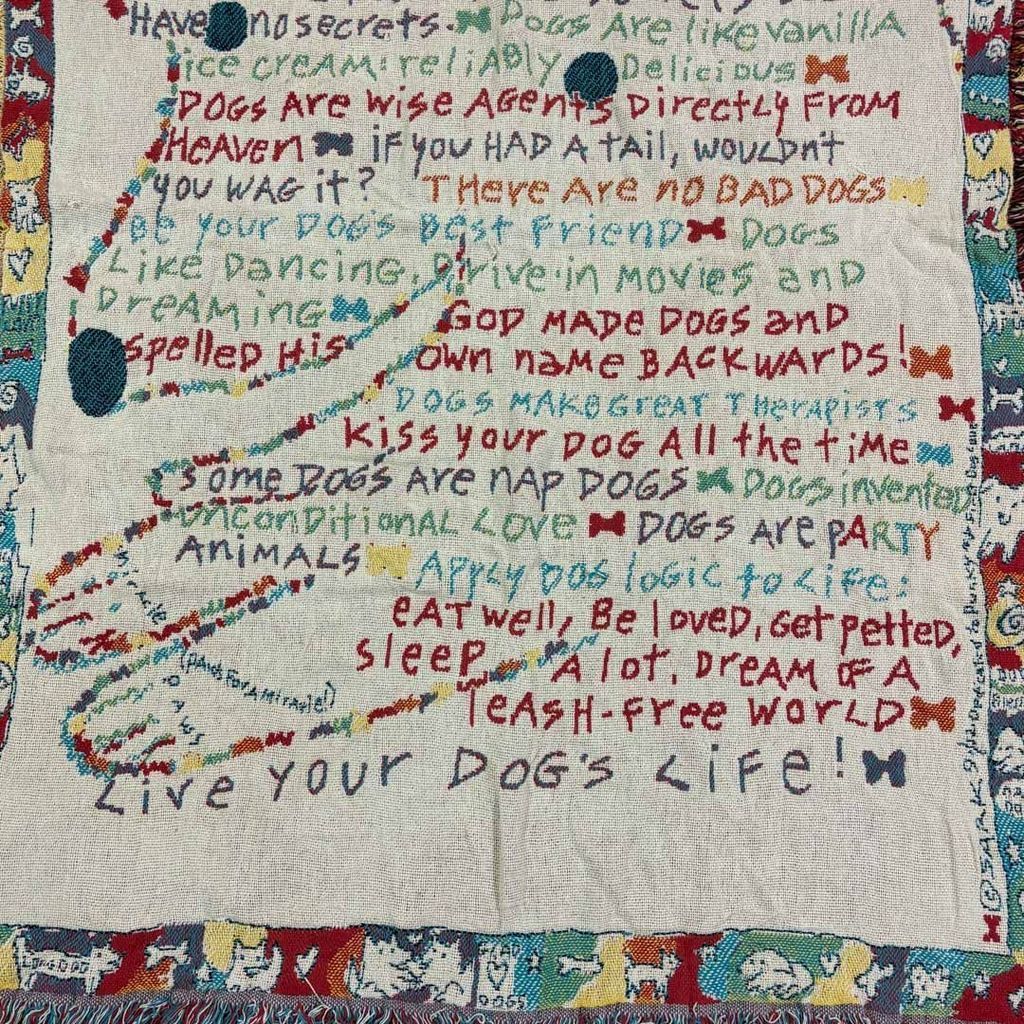 HAVE no secrets. DOGS ARE like vanillA
ice creAM: reliABly Delicious
DOGS ARE wise AGents Directly FROM
HeAven if you HAD A tAil, woulDn't
you wAG it? THere Are no BAD DOGS
Be your DOG's Best FrienD DOGS
Like DAncinG, Drive-in Movies anD
DreAMinG GOD MADe DOGS anD
spelleD His own nAMe BACKWARDS!
DOGS MAKe GreAT THerApists
Kiss your DOG All the tiMe
some DOGS Are nAp DOGS DOGS invented
unconDitionAL Love DOGS Are pARTY
AniMALS Apply DOG loGic to LiFe:
eAT well, Be loveD, Get petteD,
sleep A lot, DreAM oF A
leAsH-Free worLD
Live your DOG's LiFe!
(pAws For A MirAcle!)
pAws
MirAcle
©SARK
DOGS